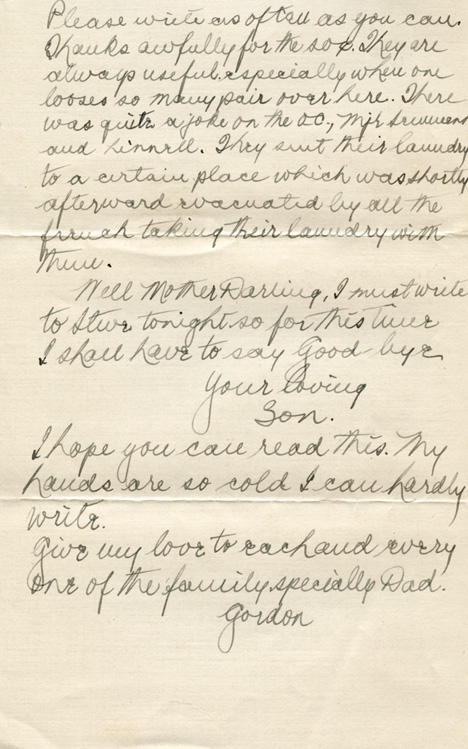 Please write as often as you can.
Thanks awfully for the sox. They are
always useful especially when one
looses so many pair over here. There
was quite a joke on the OC,
and They sent their laundry
to a certain place which was shortly
afterward evacuated by all the
french taking their laundry with
them.
Well Mother Darling, I must write
to Steve tonight so for this time
I shall have to say Good-bye
Your loving
Son.
I hope you can read this. My
hands are so cold I can hardly
write.
Give my love to each and every
one of the family, specially Dad.
Gordon